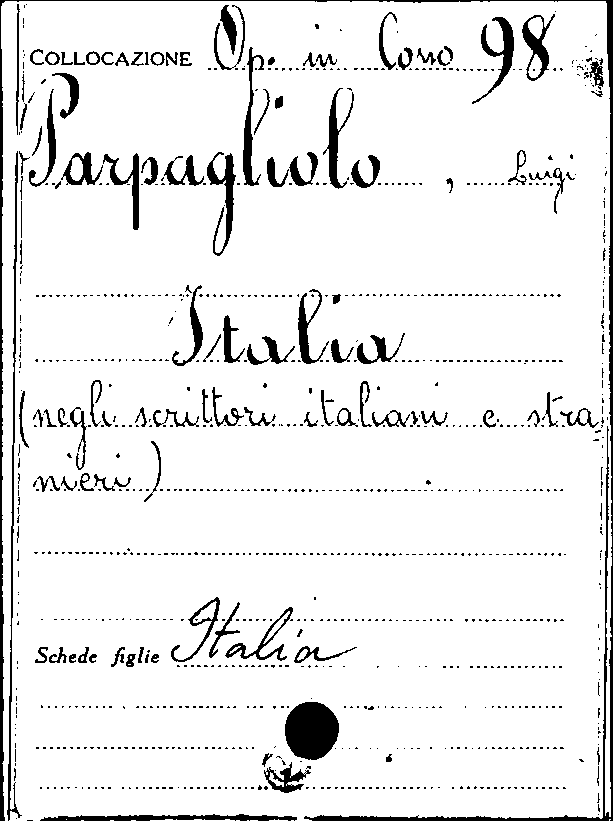 COLLOCAZIONE Op. in Corso 98
Parpagliolo, Luigi
Italia
(negli scrittori italiani e stra
nieri)
Schede figlie Italia